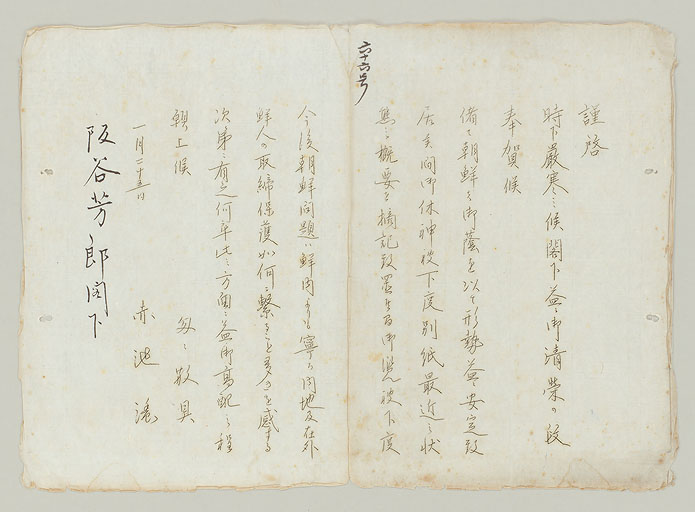 六十六号
謹啓
時下厳寒之候閣下益々御清栄の段
奉賀候
偖て朝鮮も御蔭を以て形勢益々安定致
居候間御休神被下度別紙最近之状
態之概要を摘記致置候間御覧被下度
今後朝鮮問題ハ鮮内よりも寧ろ内地及在外
鮮人の取締保護如何ニ繋ること多きを感する
次第ニ有之何卒此ニ方面ニ益御高配之程
願上候
匆々敬具
一月二十五日
赤池濃
阪谷芳郎閣下